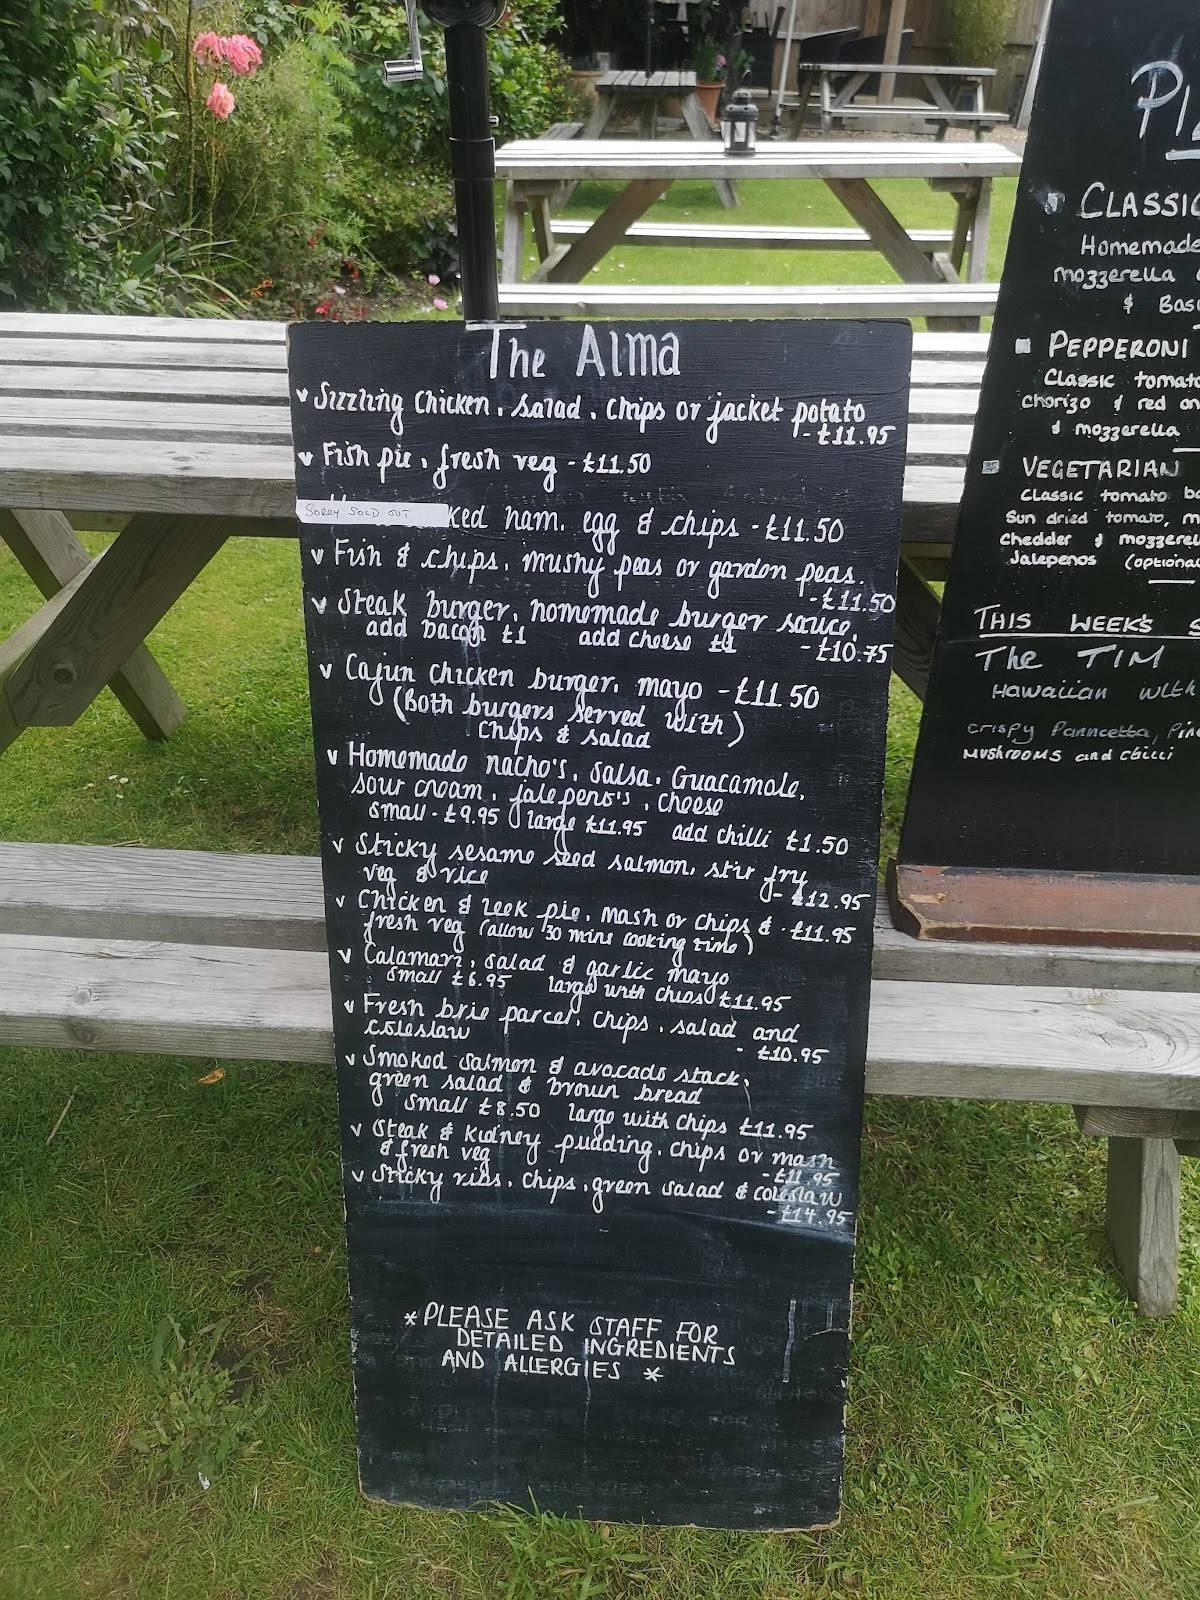 The Alma
v Sizzling chicken, salad, chips or jacket potato
- £11.95
v Fish pie, fresh veg - £11.50
SORRY SOLD OUT
ked ham, egg & chips - £11.50
v Fish & chips, mushy peas or garden peas.
- £11.50
v Steak burger, homemade burger sauce,
add bacon £1 add cheese £1 - £10.75
v Cajun chicken burger, mayo - £11.50
(Both burgers served with)
chips & salad
v Homemade nacho's, salsa, Guacamole,
sour cream, jalepeno's, cheese
small - £9.95 large £11.95 add chilli £1.50
v Sticky sesame seed salmon, stir fry
veg & rice - £12.95
v Chicken & leek pie, mash or chips & - £11.95
fresh veg (allow 30 mins cooking time)
v Calamari, salad & garlic mayo
small £6.95 large with chips £11.95
v Fresh brie parcel, chips, salad and
coleslaw - £10.95
v Smoked salmon & avocado stack,
green salad & brown bread
small £8.50 large with chips £11.95
v Steak & kidney pudding, chips or mash
& fresh veg - £11.95
v Sticky ribs, chips, green salad & coleslaw
- £14.95
*PLEASE ASK STAFF FOR
DETAILED INGREDIENTS
AND ALLERGIES *
CLASSIC
Homemade
mozzerella
& Bas
PEPPERONI
Classic tomat
chorizo & red on
& mozzerella
VEGETARIAN
Classic tomato ba
Sun dried tomato, m
Chedder & mozzerel
Jalepenos (optiona
THIS WEEK'S S
The TIM
Hawaiian with
crispy Panncetta, Pin
mushrooms and chilli